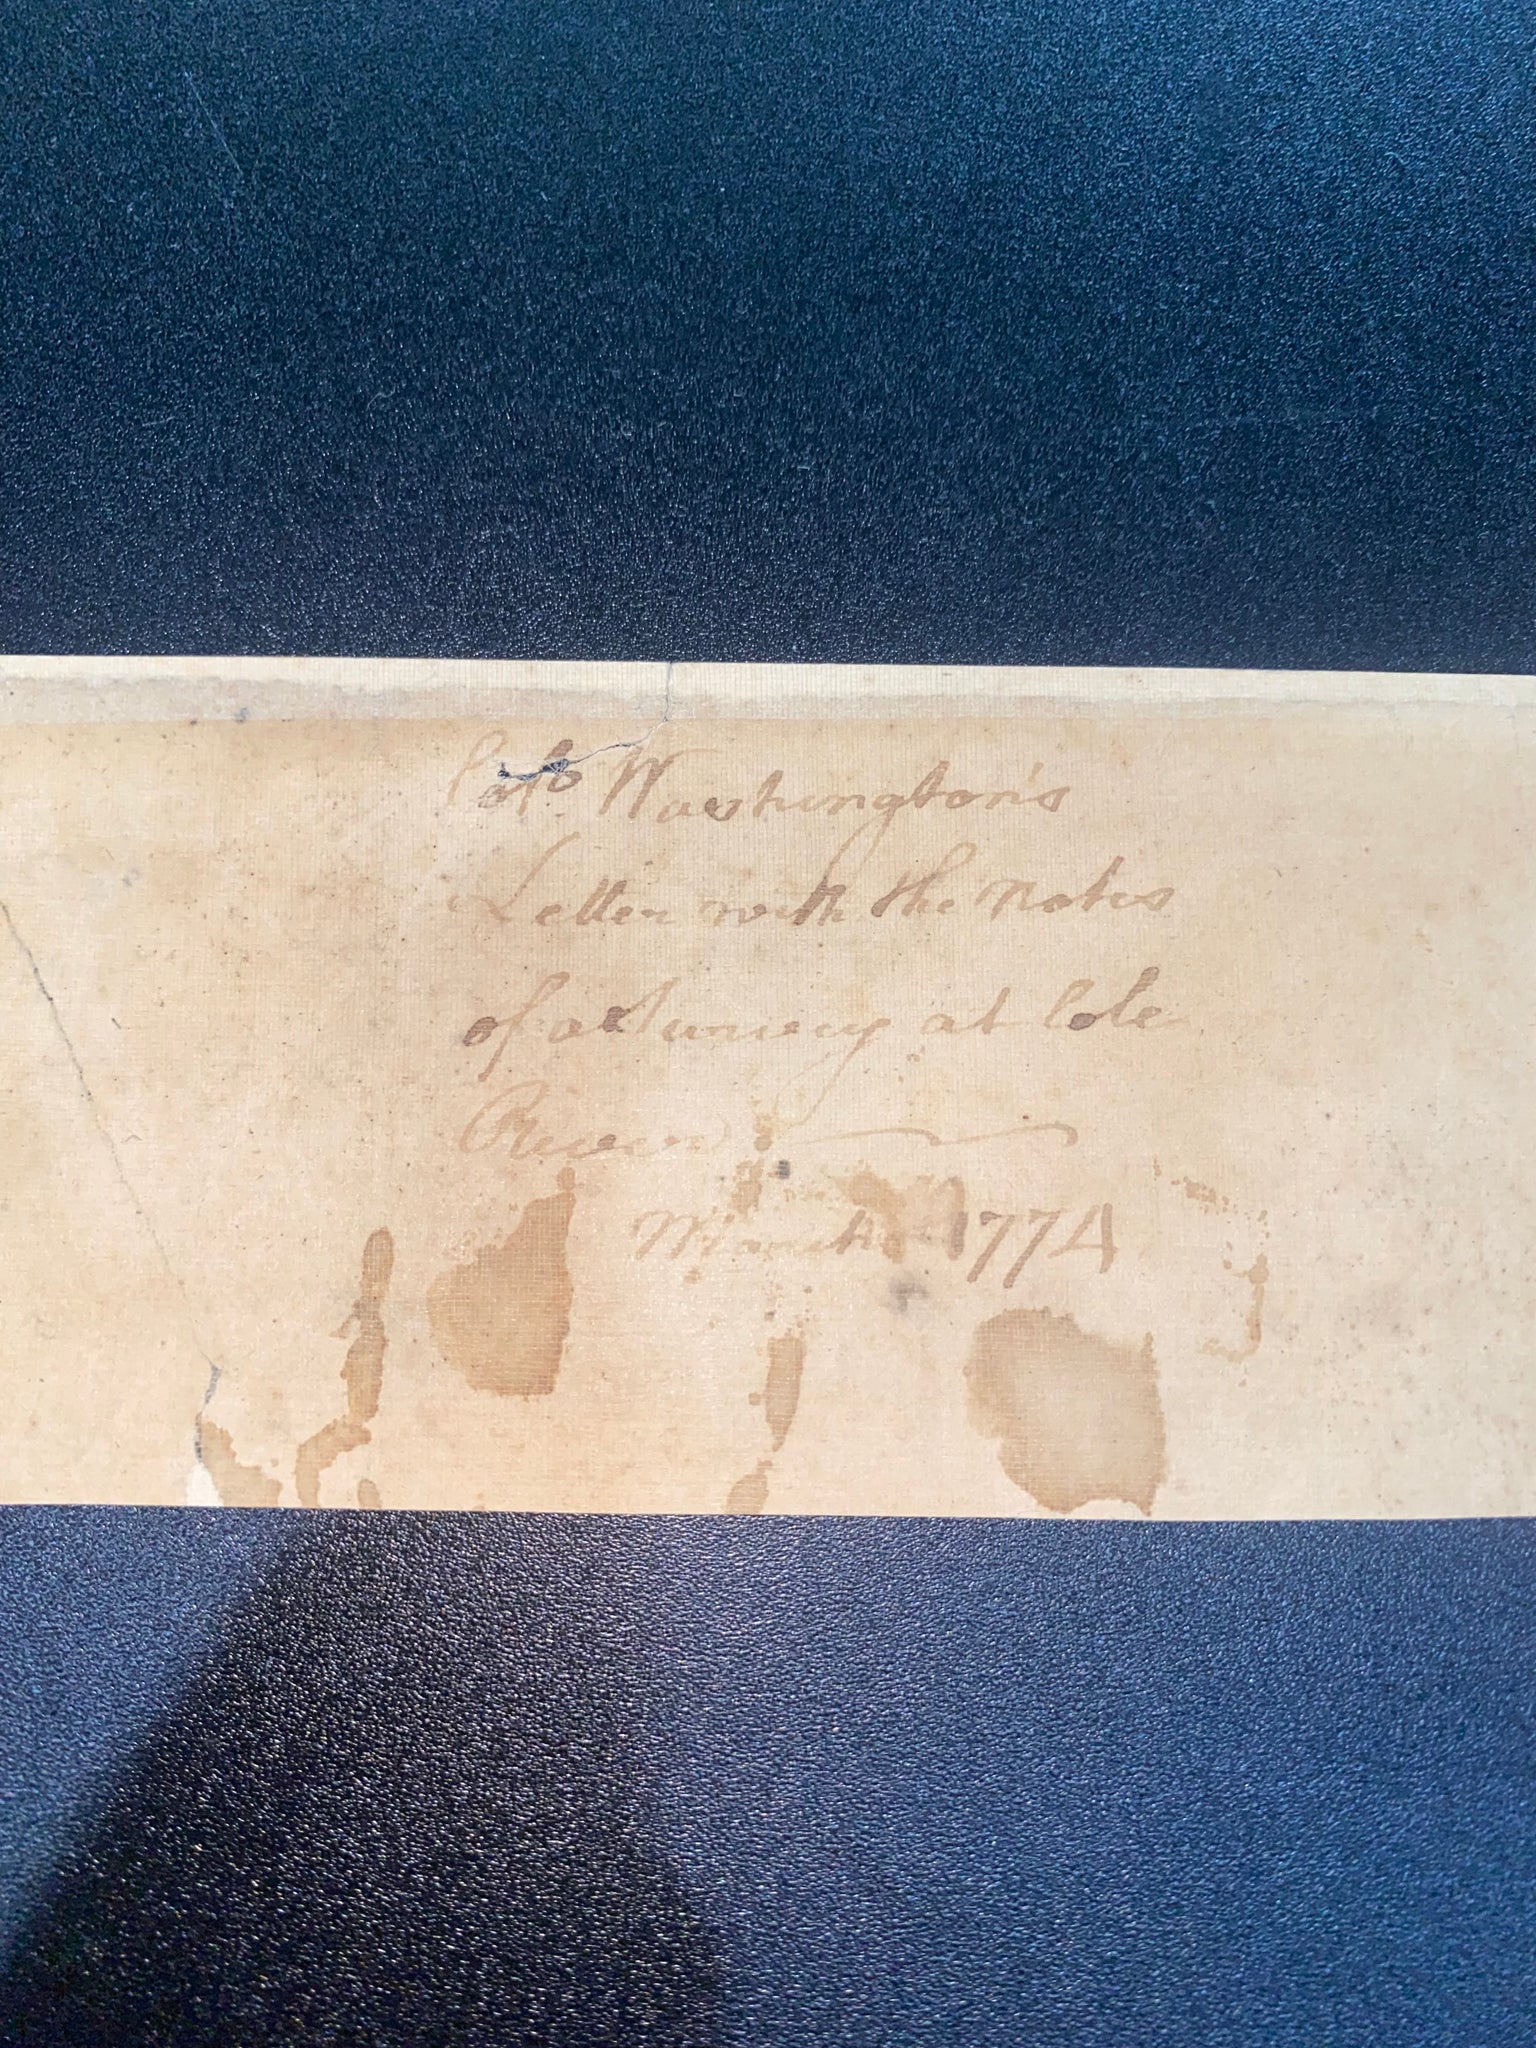 Colo. Washington's
Letter with the notes
of a Survey at Cole
River
March 1774